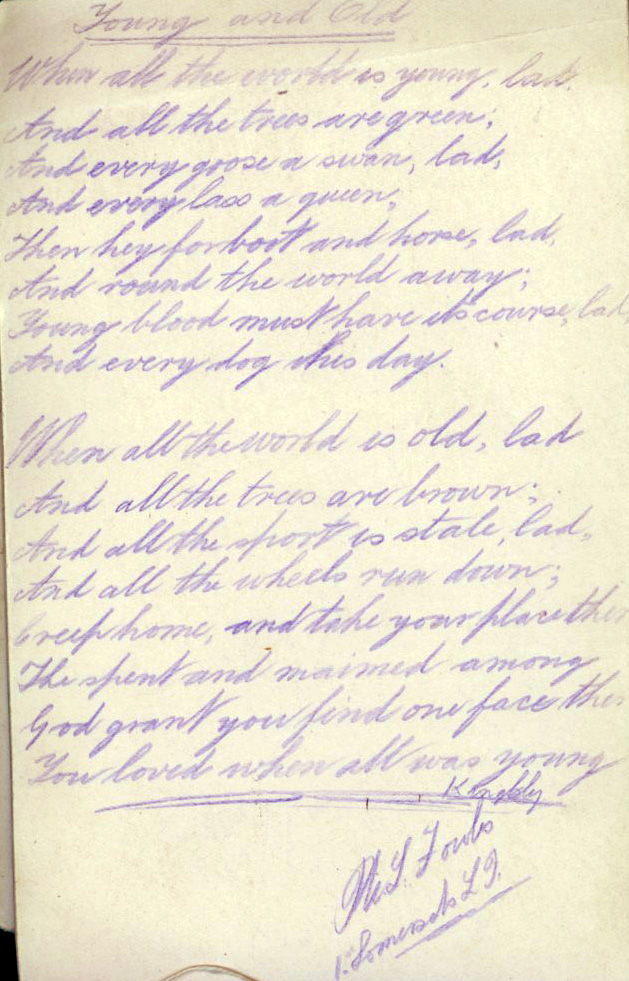 Young and Old
When all the world is young, lad.
And all the trees are green;
And every goose a swan, lad,
And every lass a queen;
Then hey for boot and horse, lad,
And round the world away;
Young blood must have its course, lad,
And every dog his day.
When all the world is old, lad
And all the trees are brown;
And all the sport is stale, lad,
And all the wheels run down;
Creep home, and take your place ther
The spent and maimed among
God grant you find one face ther
You loved when all was young
Kingsley
Pte
1st Somersets L.I.